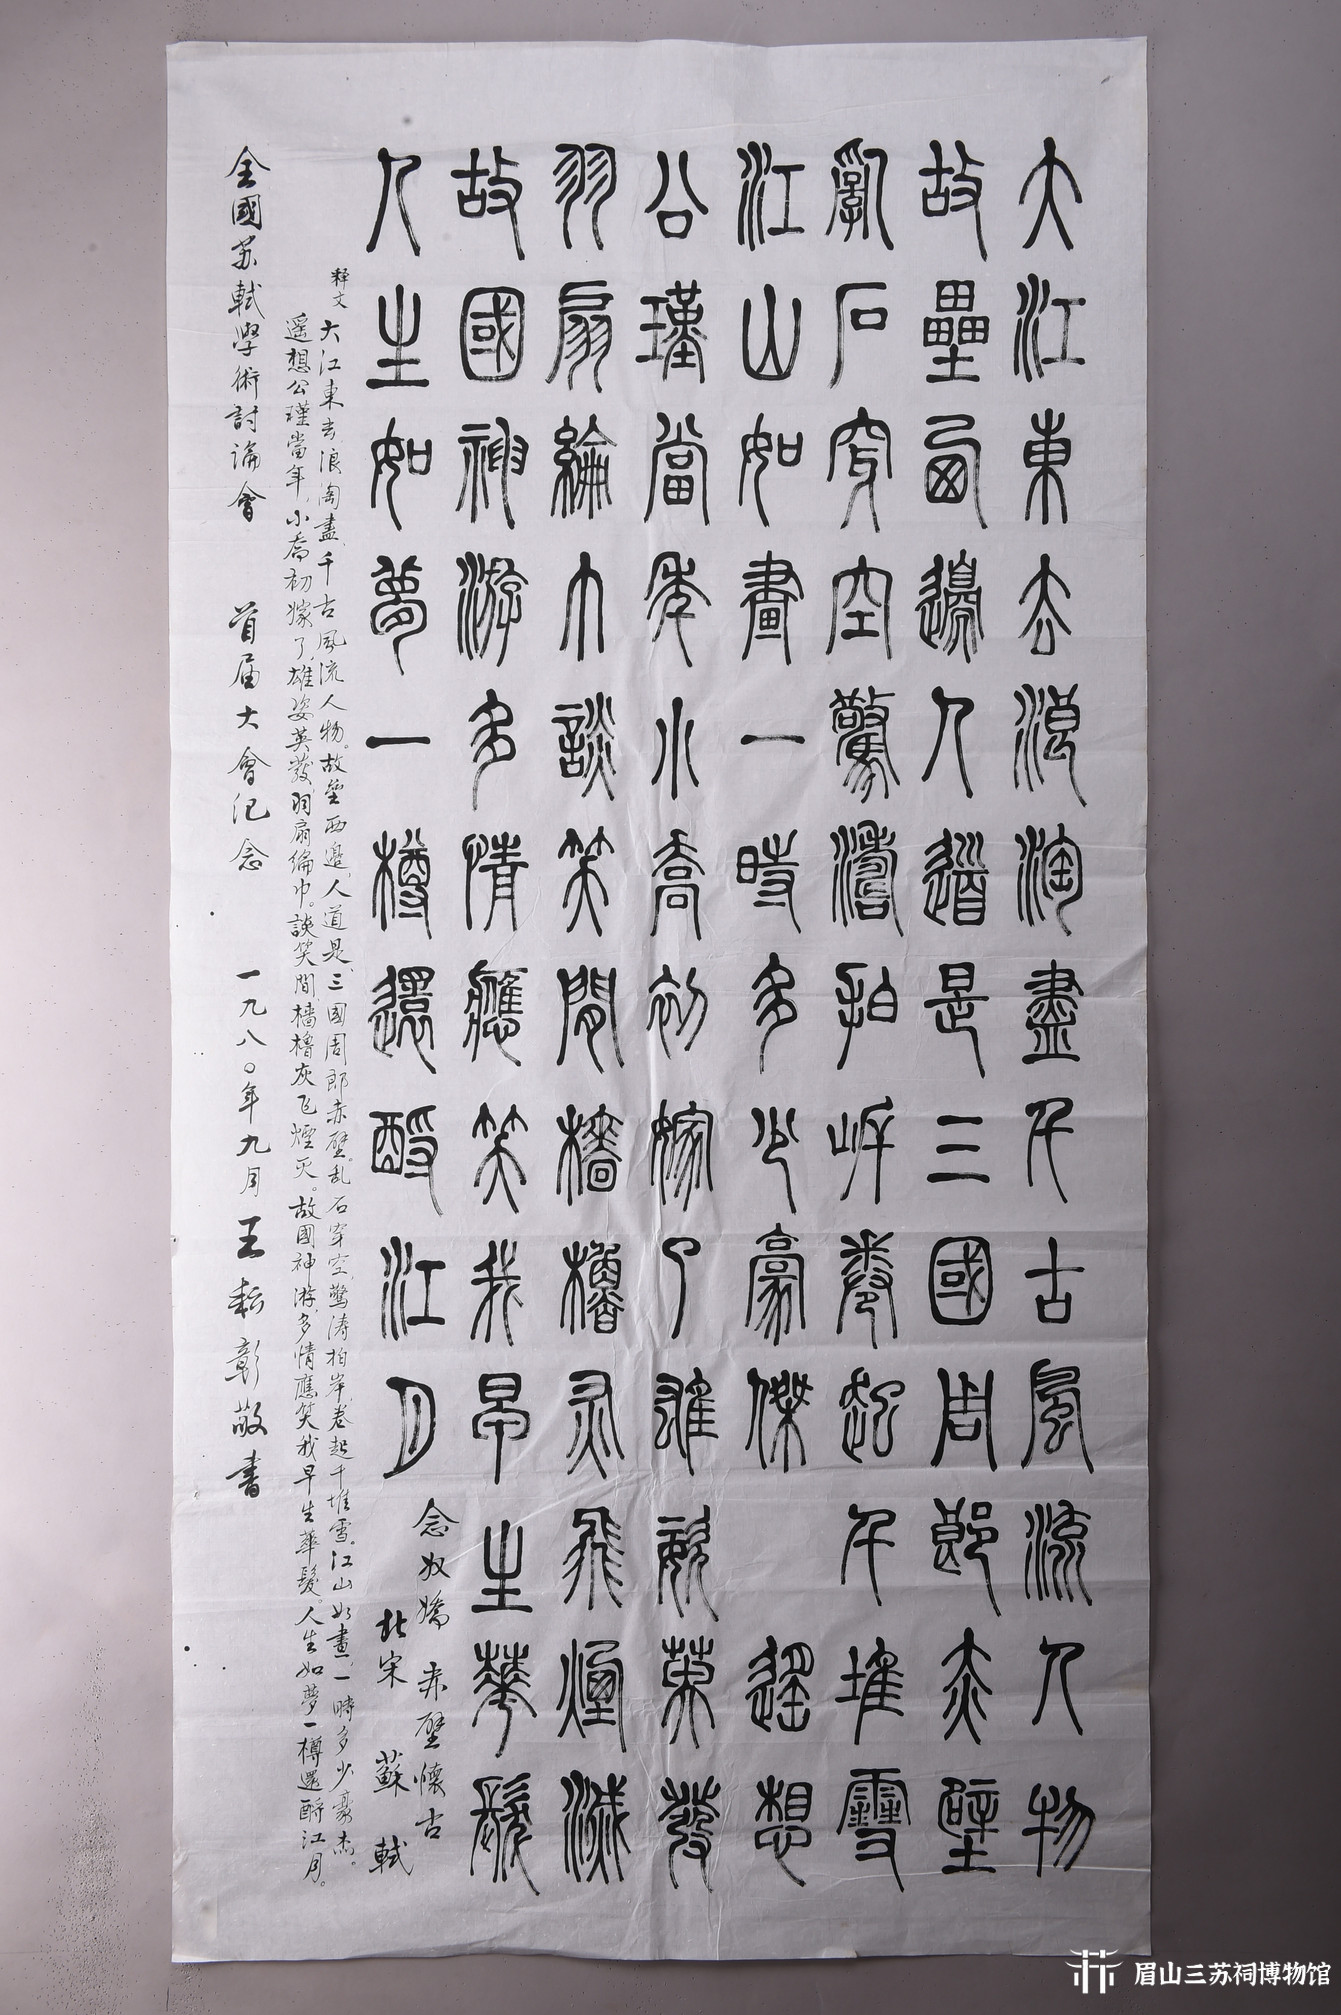 大江東去浪淘盡千古風流人物
故壘西邊人道是三國周郎赤壁
亂石穿空驚濤拍岸卷起千堆雪
江山如畫一時多少豪傑 遥想
公瑾當年小喬初嫁了雄姿英發
羽扇綸巾談笑間檣櫓灰飛煙滅
故國神游多情應笑我早生華髮
人生如夢一樽還酹江月
念奴嬌 赤壁懷古
北宋 蘇軾
释文 大江東去,浪淘盡,千古風流人物。故壘西邊,人道是,三國周郎赤壁。乱石穿空,驚涛拍岸,卷起千堆雪。江山如畫,一時多少豪杰。
遥想公瑾當年,小喬初嫁了,雄姿英發,羽扇綸巾。談笑間,檣櫓灰飞煙灭。故國神游,多情應笑我,早生華髮。人生如夢,一樽還酹江月。
全國苏軾學術討論會 首届大會纪念 一九八〇年九月 王耘彰敬書
眉山三苏祠博物馆